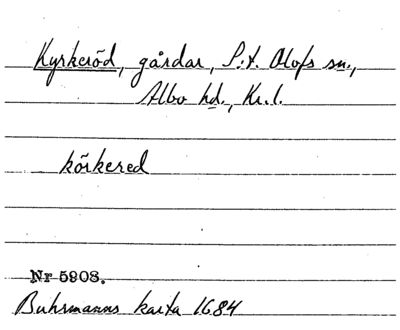 Kyrkeröd, gårdar, S:t. Olofs sn.,
Albo hd., Kr.l.
körkered
Nr 5908.
Buhrmanns karta 1684